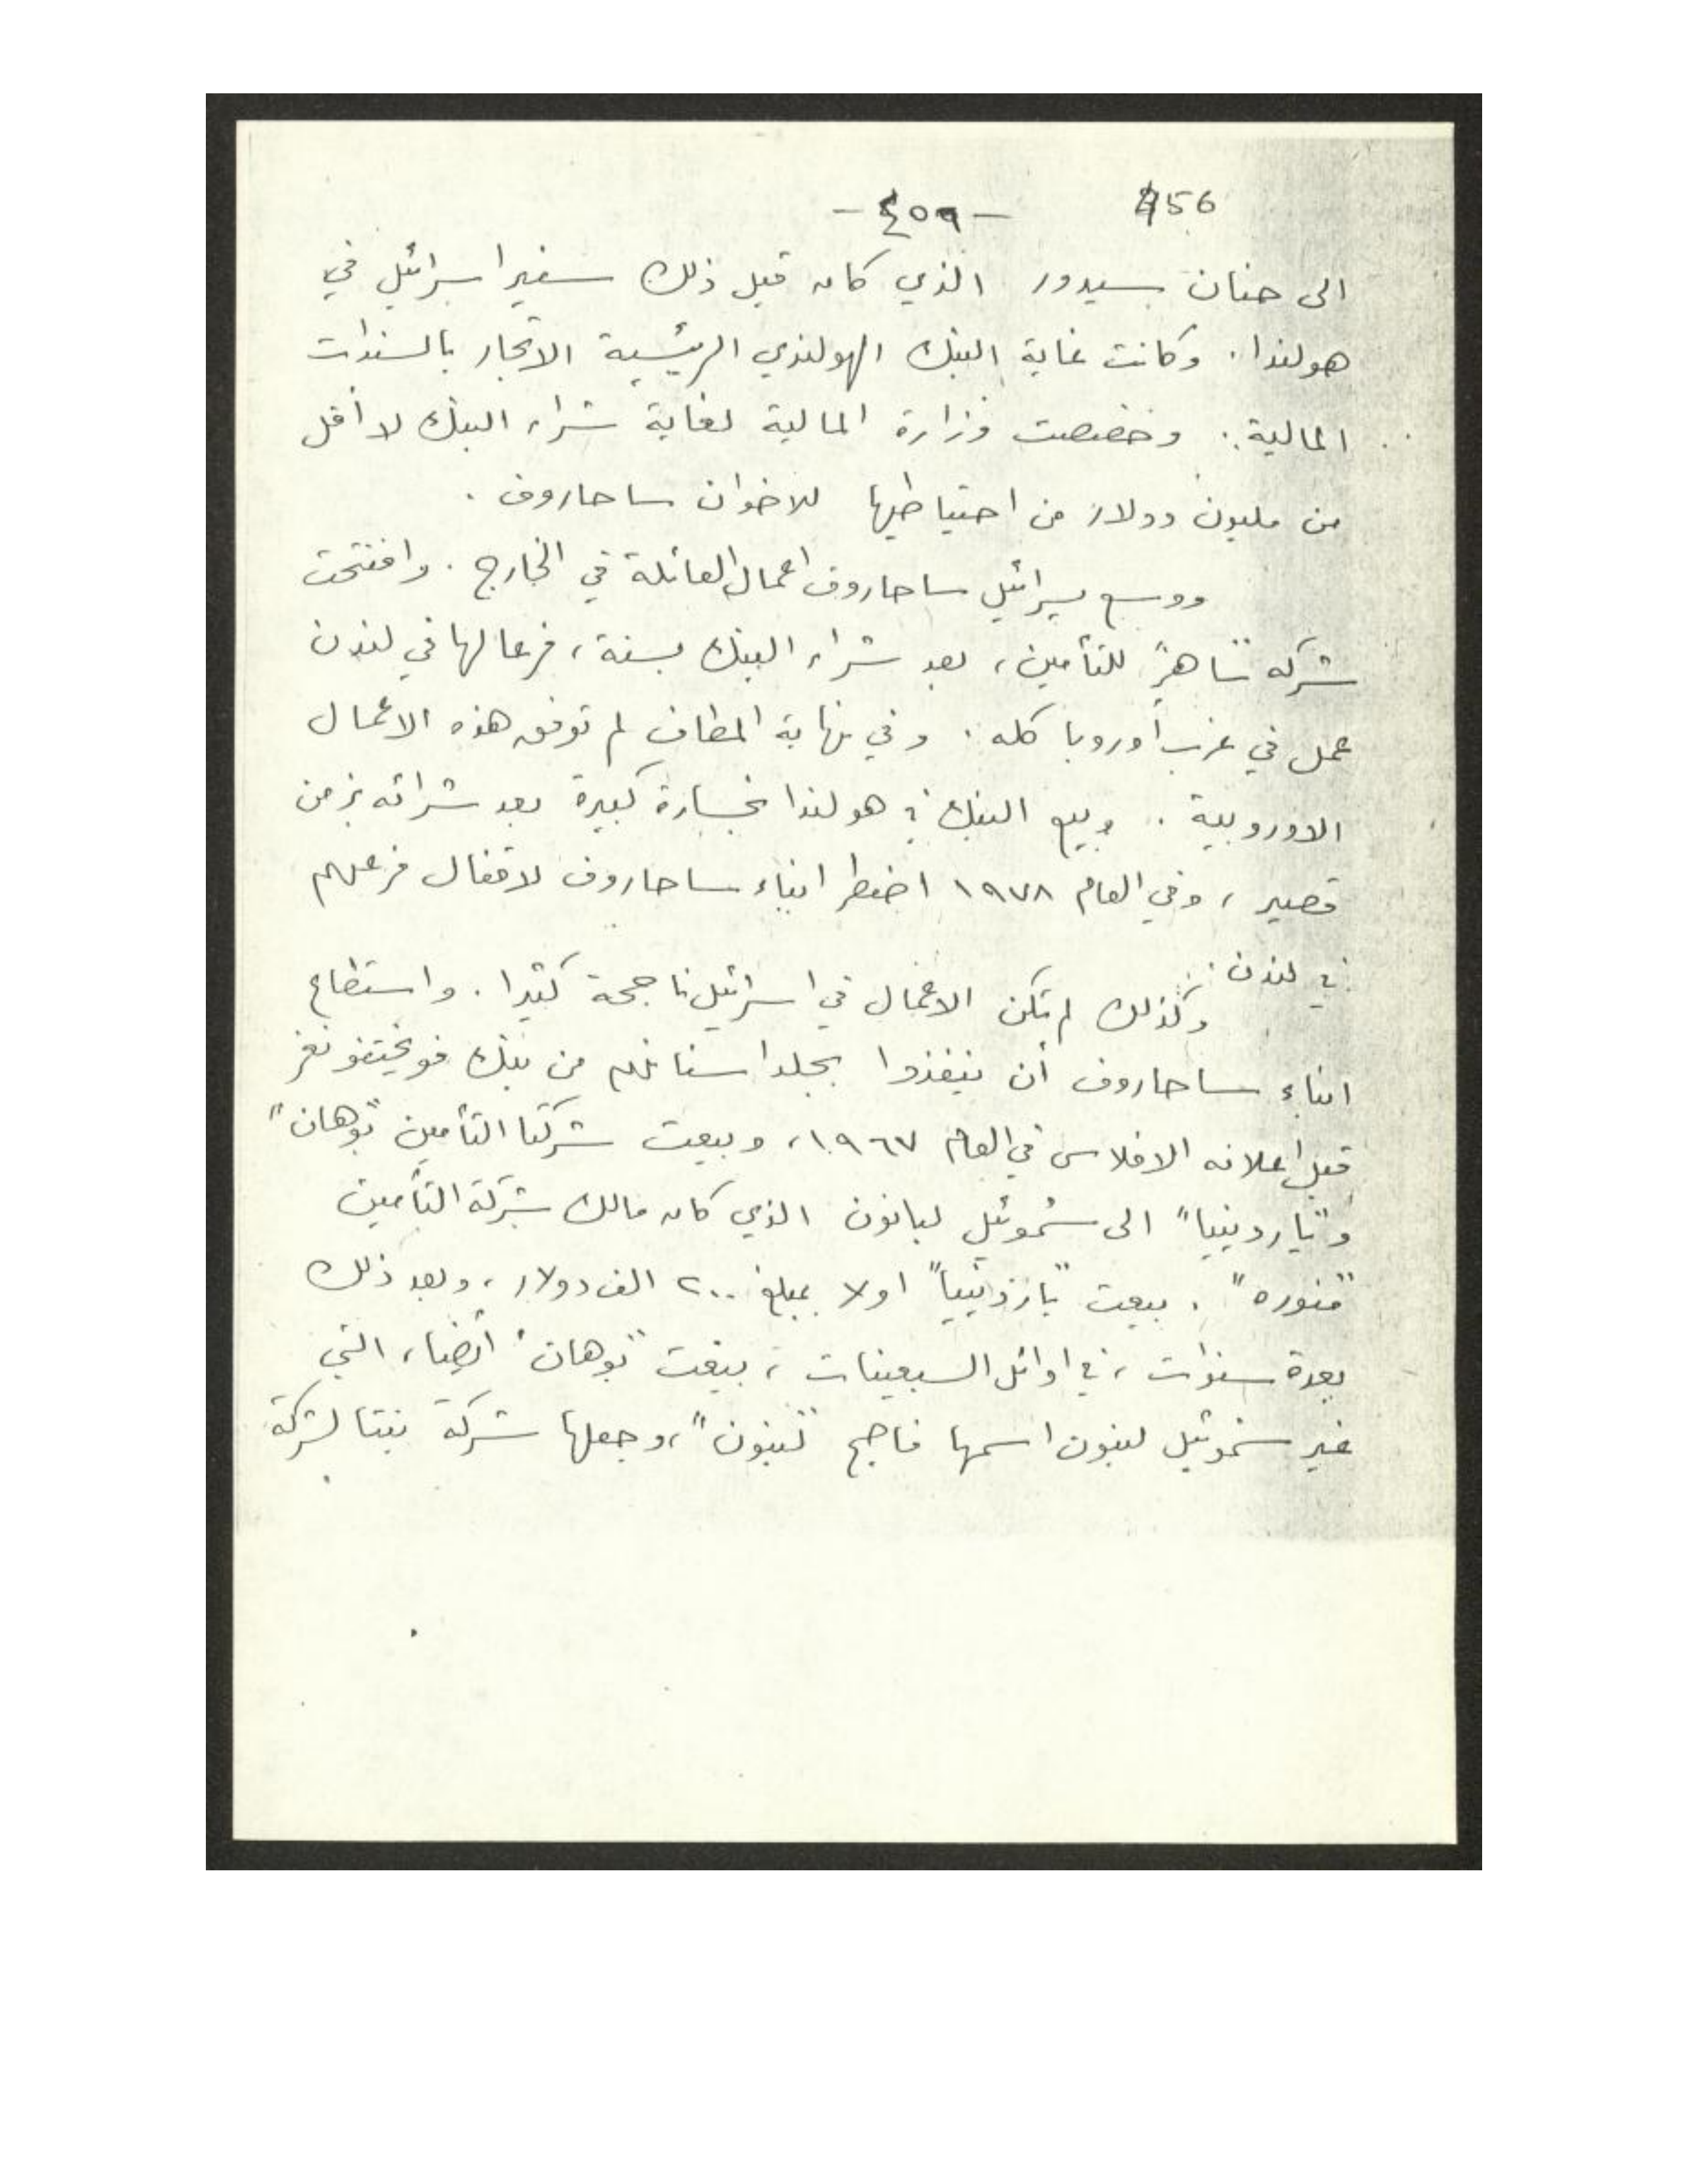 456
-٤٥٩-
الى حنان سيدور الذي كان قبل ذلك سفير اسرائيل في
هولندا. وكانت غاية البنك الهولندي الرئيسية الاتجار بالسندات
المالية. وخصصت وزارة المالية لغاية شراء البنك لا أقل
من مليون دولار من احتياطيها للاخوان ساحاروف.
ووسع يسرائيل ساحاروف اعمال العائلة في الخارج. وافتتحت
شركة "ساهر" للتأمين، بعد شراء البنك بسنة، فرعا لها في لندن
عمل في غرب أوروبا كله. وفي نهاية المطاف لم توفق هذه الاعمال
الاوروبية. وبيع البنك في هولندا بخسارة كبيرة بعد شرائه بزمن
قصير، وفي العام ١٩٧٨ اضطر ابناء ساحاروف لاقفال فرعهم
في لندن.
وكذلك لم تكن الاعمال في اسرائيل ناجحة كثيرا. واستطاع
ابناء ساحاروف أن ينفذوا بجلد اسنانهم من بنك فويختفونغر
قبل اعلانه الافلاس في العام ١٩٦٧، وبيعت شركتا التأمين "بوهان"
و"ياردينيا" الى شموئيل لبانون الذي كان مالك شركة التأمين
"منوره". بيعت "ياردينيا" اولا بمبلغ ٢٠٠ الف دولار، وبعد ذلك
بعدة سنوات، في اوائل السبعينات، بيعت "بوهان" أيضا، التي
غير شموئيل لبنون اسمها فاصبح "لبنون"، وجعلها شركة بنتا لشركة